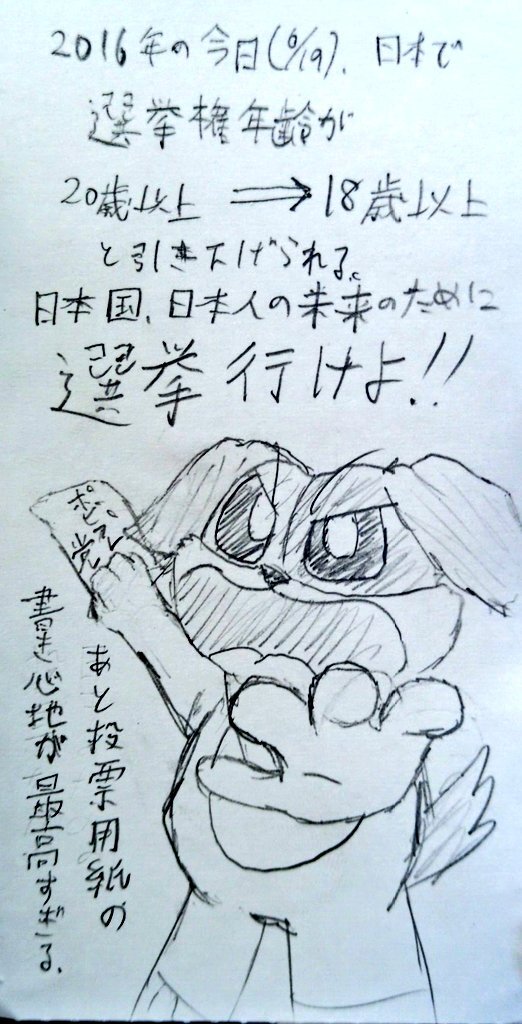 2016年の今日(6/19)、日本で
選挙権年齢が
20歳以上 ⇒ 18歳以上
と引き下げられる。
日本国、日本人の未来のために
選挙行けよ!!
ポピプレ
党
あと投票用紙の
書き心地が最高すぎる。